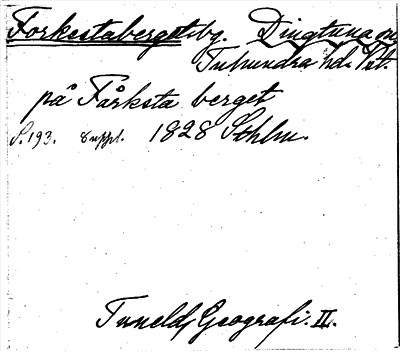 Forkestaberget, by. Dingtuna sn
Tuhundra hd. Vstl.
på Fårksta berget
S. 193. Suppl. 1828 Sthlm.
Tuneld, Geografi. II.